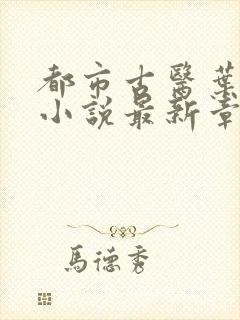 都市古醫葉
小說最新章
馬德秀